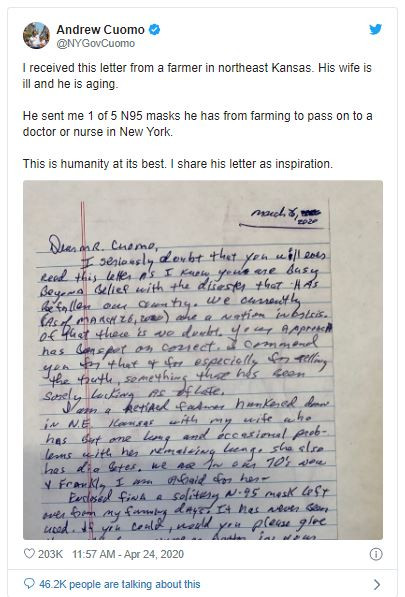 Andrew Cuomo
@NYGovCuomo
I received this letter from a farmer in northeast Kansas. His wife is
ill and he is aging.
He sent me 1 of 5 N95 masks he has from farming to pass on to a
doctor or nurse in New York.
This is humanity at its best. I share his letter as inspiration.
march
2020
Dear mR. Cuomo,
I seriously doubt that you will ever
read this letter as I know you are Busy
Beyond Belief with the disaster that HAs
Befallen our country. We currently
(As of MARCH 26, 2020) are a nation in crisis.
Of that there is no doubt. your approach
has been spot on correct. I commend
you for that & for especially for telling
the truth, something that has been
sorely lacking As of Late.
I am a Retired farmer hunkered down
in N.E. Kansas with my wife who
has but one lung and occasional prob-
lems with her remaining lung. she also
has diabetes. we are in our 70's now
& Frankly I am afraid for her.
Enclosed find a solitary N-95 mask left
over from my farming days. It has never been
used. if you could, would you please give
203K 11:57 AM - Apr 24, 2020
46.2K people are talking about this